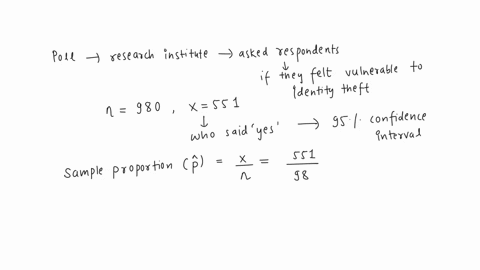 Poll → research institute → asked respondents
↓
if they felt vulnerable to
Identity theft
n = 980 , x = 551
↓
who said 'yes' → 95% confidence
interval
Sample proportion (p̂) = x/n = 551/98